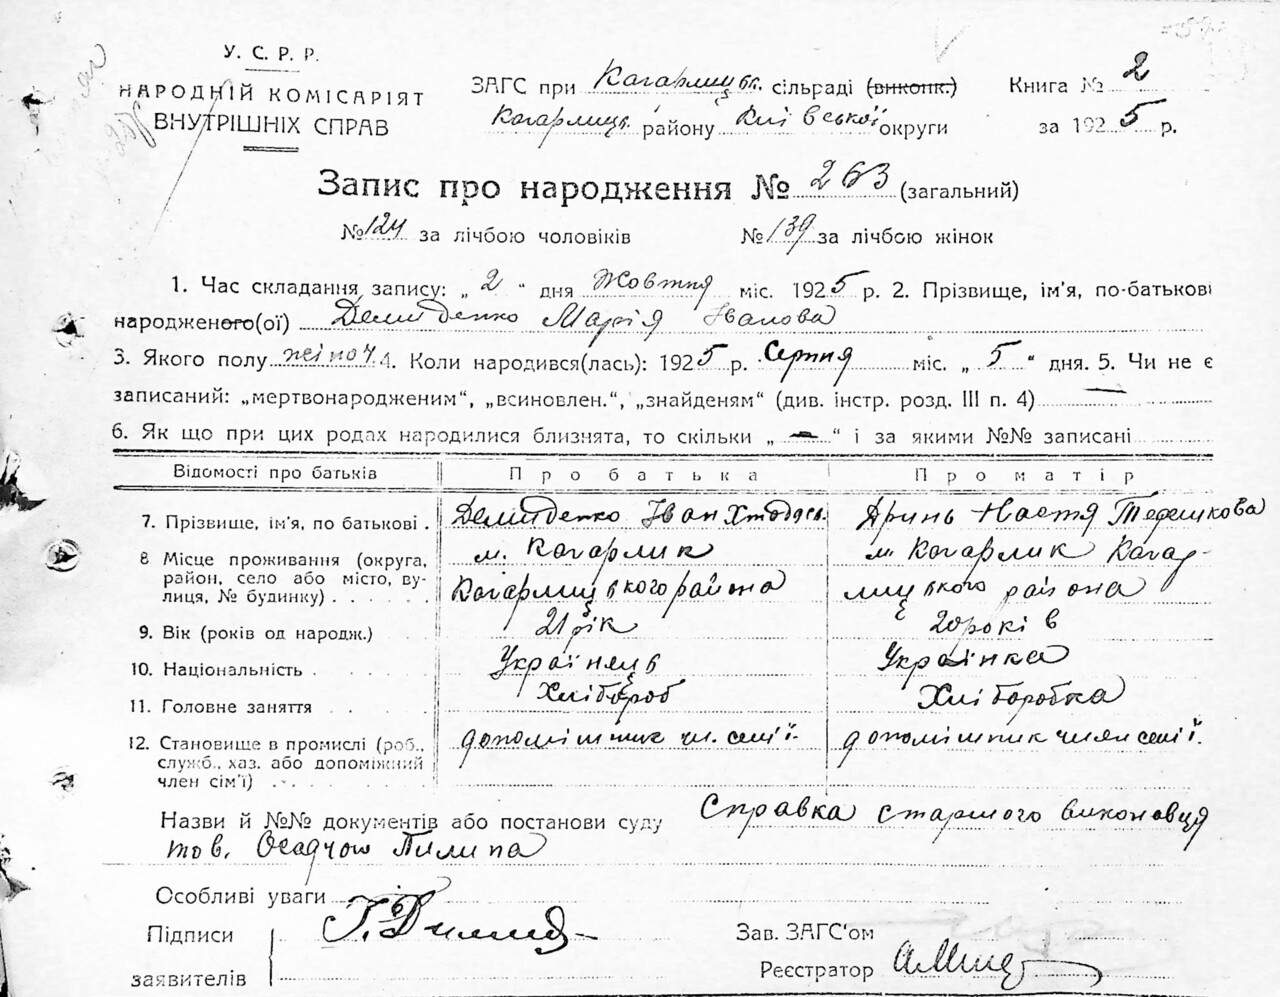 У. С. Р. Р.
НАРОДНІЙ КОМІСАРІЯТ
ВНУТРІШНІХ СПРАВ
ЗАГС при Кагарлицьк. сільраді (виконк.)
Кагарлицьк. району Київської округи
Книга № 2
за 1925 р.
Запис про народження № 263 (загальний)
№ 124 за лічбою чоловіків № 139 за лічбою жінок
1. Час складання запису: „ 2 “ дня Жовтня міс. 1925 р. 2. Прізвище, ім'я, по-батькові
народженого(ої) Демиденко Марія Іванова
3. Якого полу жіноч. 4. Коли народився(лась): 1925 р. Серпня міс. „ 5 “ дня. 5. Чи не є
записаний: „мертвонародженим“, „всиновлен.“, „знайденям“ (див. інстр. розд. III п. 4) —
6. Як що при цих родах народилися близнята, то скільки „ — “ і за якими №№ записані
Відомості про батьків Про батька Про матір
7. Прізвище, ім'я, по батькові . Демиденко Іван Настя
8 Місце проживання (округа, м. Кагарлик м. Кагарлик Кагар-
район, село або місто, ву-
лиця, № будинку) . . . . . . Кагарлицького района лицького района
9. Вік (років од народж.) . . . 21 рік 20 років
10. Національність . . . . . . Українець Українка
11. Головне заняття . . . . . Хлібороб Хліборобка
12. Становище в промислі (роб., допомішник чл. семії. допомішник член семії.
служб., хаз. або допоміжний
член сім'ї) . . . . . . . .
Назви й №№ документів або постанови суду Справка старшого виконавця
тов. Осадчого Пилипа
Особливі уваги
Підписи
заявителів
Зав. ЗАГС'ом
Реєстратор